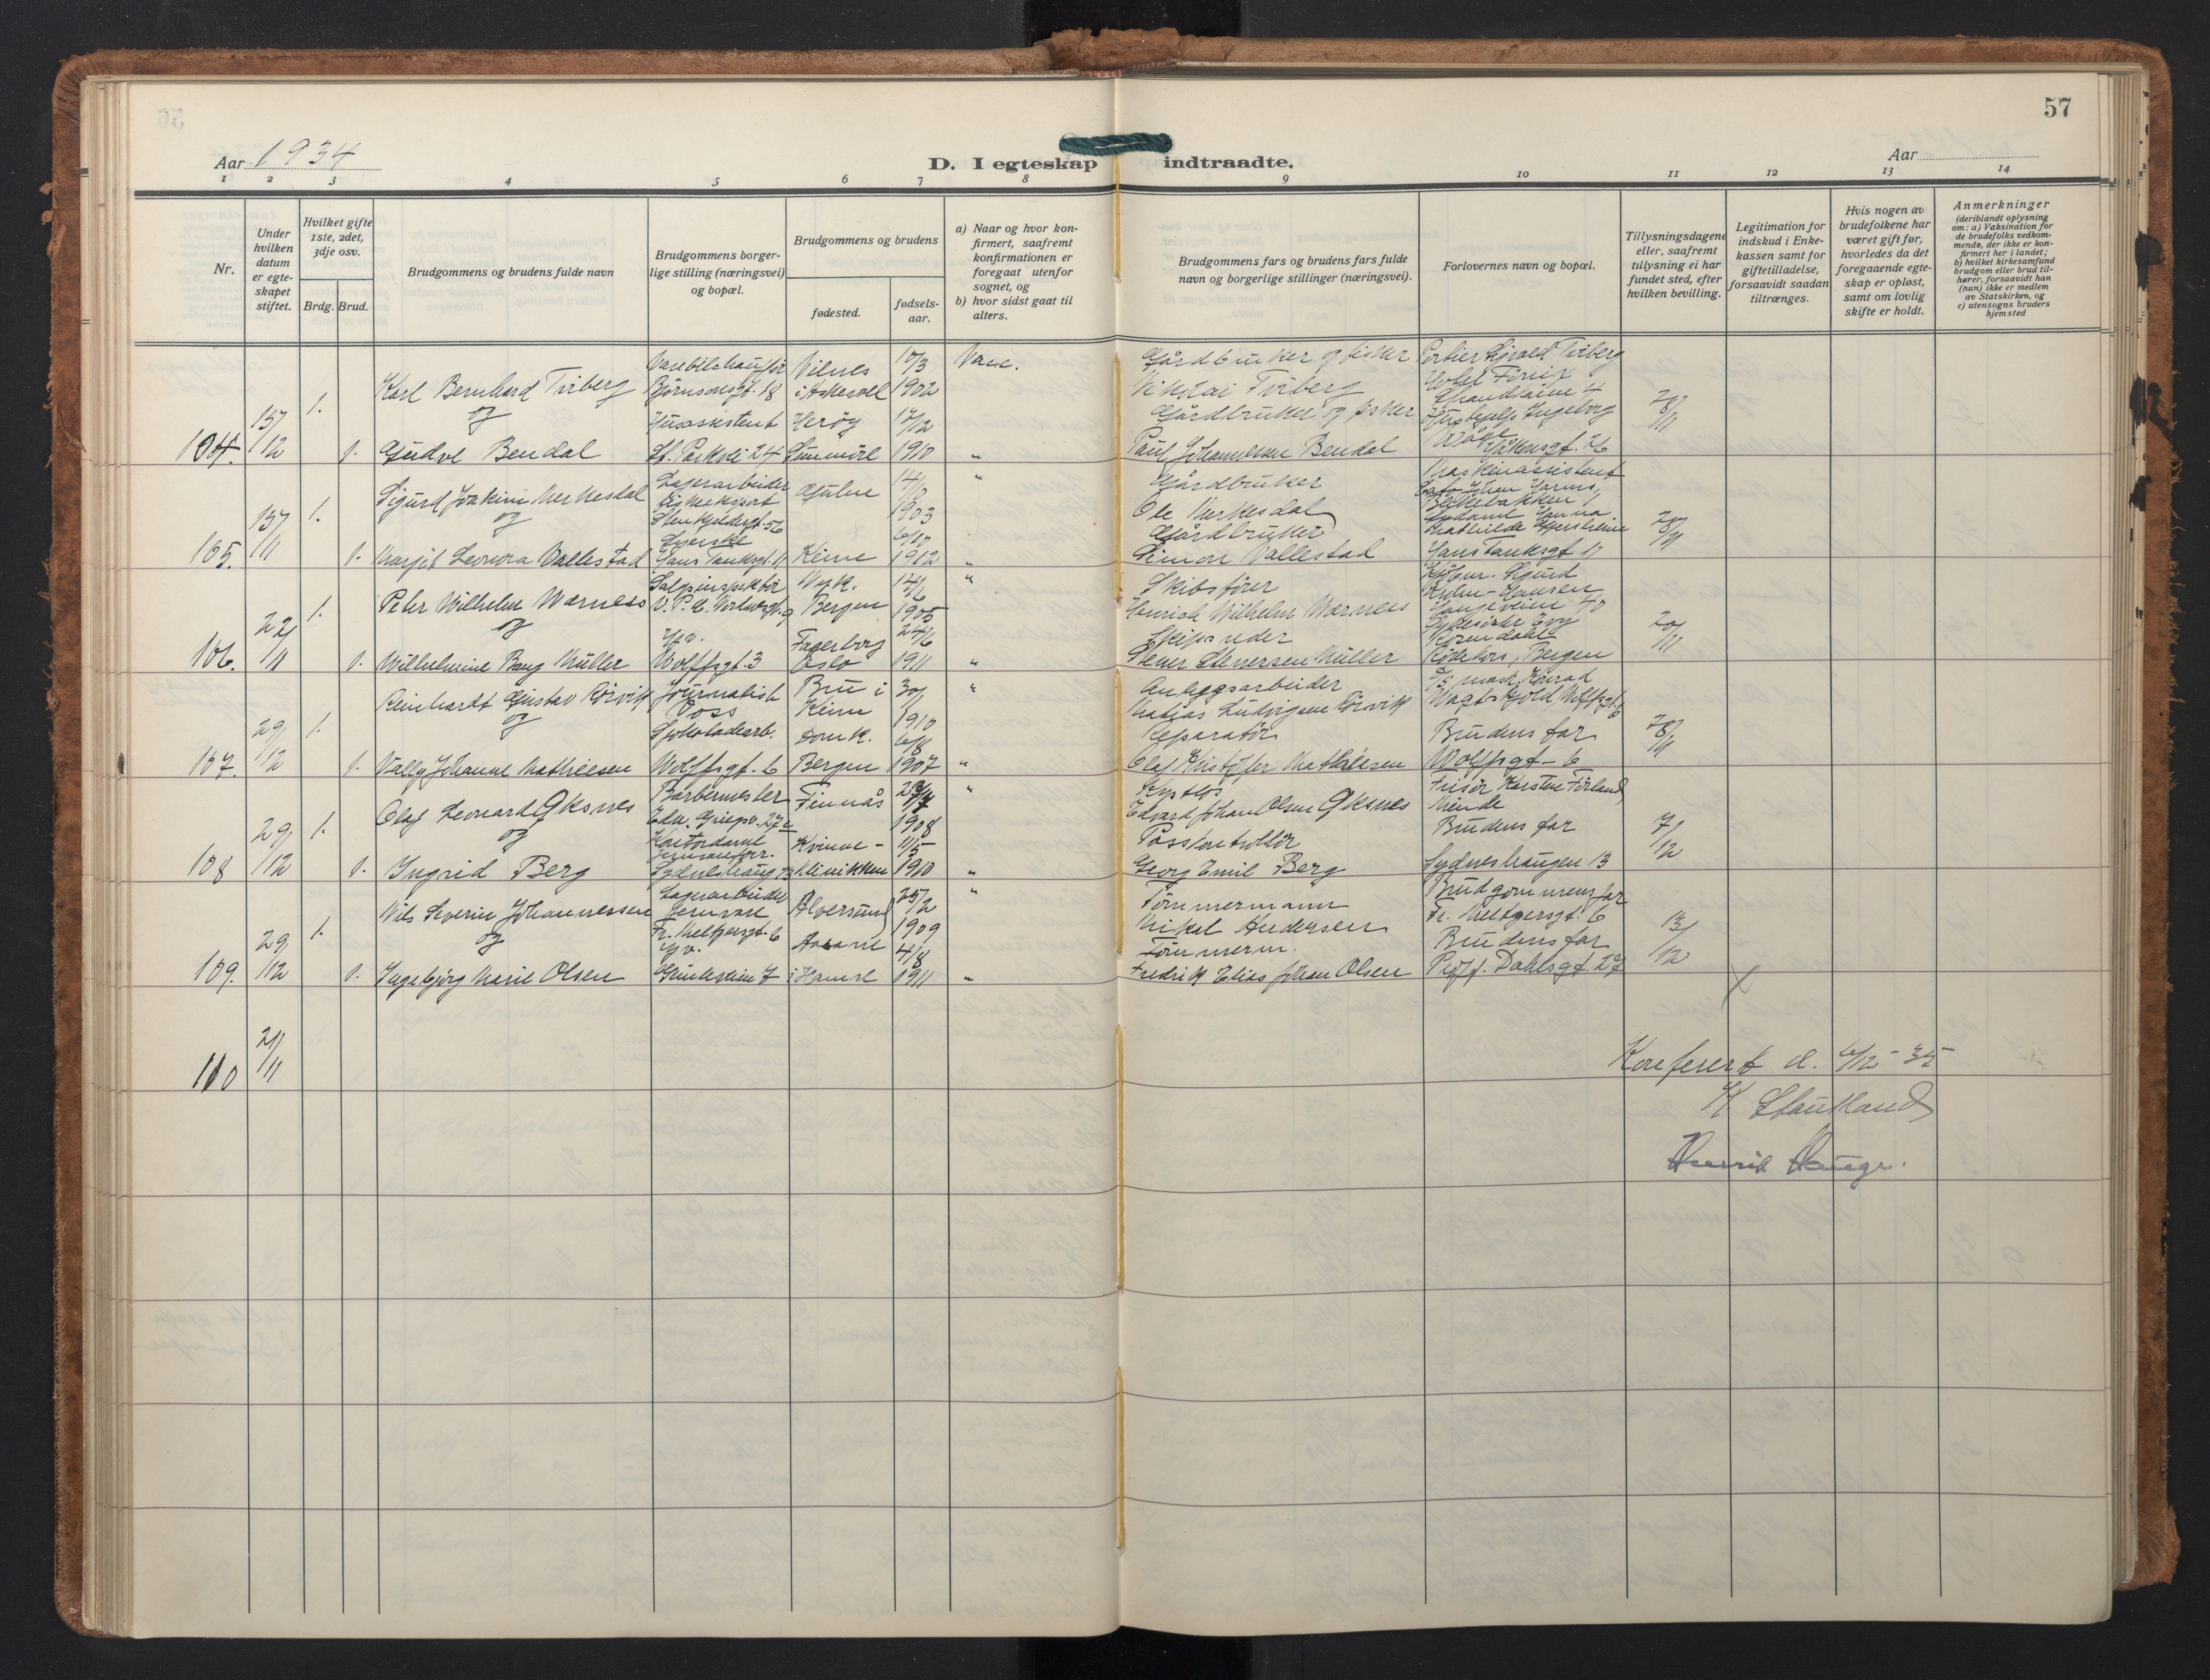 57
Aar 1934
D. I egteskap indtraadte.
Aar
1 2 3 4 5 6 7 8 9 10 11 12 13 14
Nr.
Under hvilken datum er egteskapet stiftet.
Hvilket gifte 1ste, 2det, 3dje osv.
Brdg. Brud.
Brudgommens og brudens fulde navn
Brudgommens borgerlige stilling (næringsvei) og bopæl.
Brudgommens og brudens
fødested.
fødselsaar.
a) Naar og hvor konfirmert, saafremt konfirmationen er foregaat utenfor sognet, og
b) hvor sidst gaat til alters.
Brudgommens fars og brudens fars fulde navn og borgerlige stillinger (næringsvei).
Forlovernes navn og bopæl.
Tillysningsdagene eller, saafremt tillysning ei har fundet sted, efter hvilken bevilling.
Legitimation for indskud i Enkekassen samt for giftetilladelse, forsaavidt saadan tiltrænges.
Hvis nogen av brudefolkene har været gift før, hvorledes da det foregaaende egteskap er opløst, samt om lovlig skifte er holdt.
Anmerkninger
(deriblandt oplysning om: a) Vaksination for de brudefolks vedkommende, der ikke er konfirmert her i landet; b) hvilket kirkesamfund brudgom eller brud tilhører, forsaavidt han (hun) ikke er medlem av Statskirken, og c) utensogns bruders hjemsted
104. 15/12 1. Karl Bernhard Tviberg
Bjørnsonsgt. 18
Vilnes i Askevoll
10/3 1902
Vacc.
Gårdbruker og fisker
Nikolai Tviberg
Portier Sigvald Tviberg
Hotel Fønix
28/11
og
1. Gudve Bendal
Husassistent
St. Parkvei 24
Herøy Sunmöre
17/12 1910
"
Gårdbruker og fisker
Paul Johannesen Bendal
Håkonsgt. 26
105. 15/11 1. Sigurd Joakim Merkesdal
Lagerarbeider
Gulen
14/10 1903
"
Gårdbruker
Ole Merkesdal
Maskinassistent
28/11
og
1. Margit Leonora Vallestad
Syerske
Hans Tanksgt. 11
Kinn
6/10 1912
"
Gårdbruker
Simon Vallestad
Hans Tanksgt 11
106. 22/11 1. Peter Wilhelm Warness
Salgsinspektör
Nyk. Bergen
14/6 1905
"
Skibsfører
Henrich Wilhelm Warness
Kjøbm. Sigurd
Holm-Hansen
Haugeveien 40
20/11
og
1. Wilhelmine Bang Müller
Yv.
Wolffsgt. 3
Fagerborg Oslo
24/6 1911
"
Skipsreder
Stener Stenersen Müller
Rosendahl
Rødekors, Bergen
107. 29/12 1. Reinhardt Gustav Rörvik
Journalist
Voss
Bru i Kinn
30/1 1910
"
Anleggsarbeider
Matias Ludvigsen Rörvik
28/11
og
1. Vally Johanne Mathiesen
Sjokoladearb.
Wolffsgt. 6
Domk. Bergen
6/8 1907
"
Reparatör
Olaf Kristofer Mathiesen
Brudens far
Wolffsgt - 6
108 29/12 1. Olaf Leonard Öksnes
Barbermester
Finnås
1908
"
Edvard Johan Olsen Öksnes
Frisör Karsten Förland
Minde
7/12
og
1. Ingrid Berg
Kontordame
Sydneshaug 13
Kvinne-klinikken
11/5 1910
"
Postkontrollör
Georg Emil Berg
Brudens far
Sydneshaugen 13
109. 29/12 1. Nils Severin Johannessen
Lagerarbeider
jernvare
Fr. Meltzersgt. 6
Alversund
25/2 1909
"
Tömmermann
Mikal Andersen
Brudgommens far
Fr. Meltzersgt. 6
13/12
og
1. Ingebjørg Marie Olsen
Yv.
Åsane i Hamre
4/8 1911
"
Tömmerm.
Fredrik Elias Johan Olsen
Brudens far
Proff. Dahlsgt. 27
110 21/11
Konferert d. 6/12-35
K Stautland
Henrik Hauge.